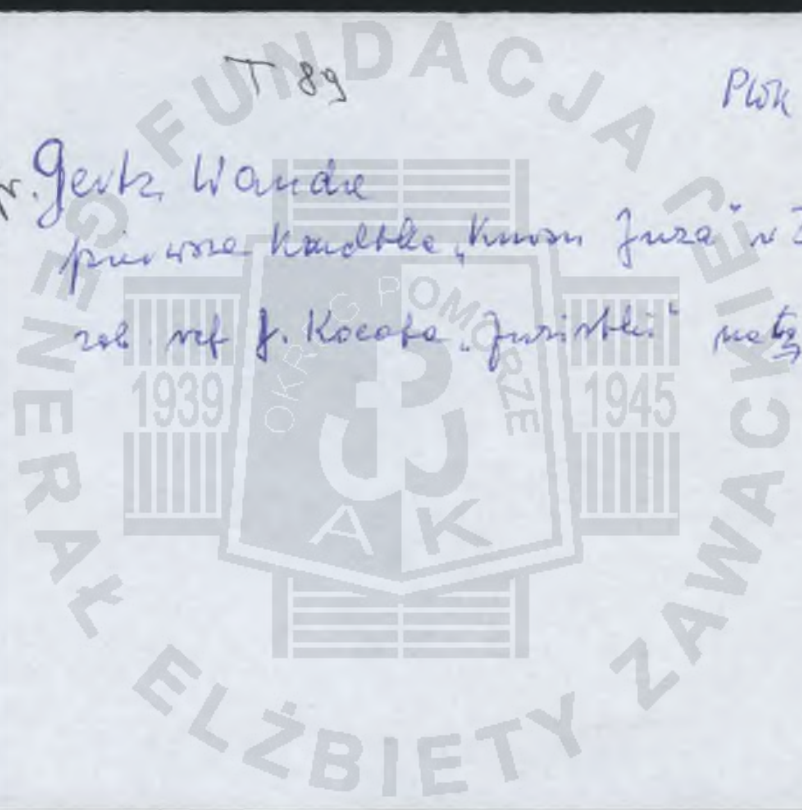 T 89
Płk
Gertz Wanda
pierwsza "Kursu Juza" w
zob. ref J. Kocota "Juzistki"
FUNDACJA GENERAŁ ELŻBIETY ZAWACKIEJ
OKRĘG POMORZE
1939
1945
AK